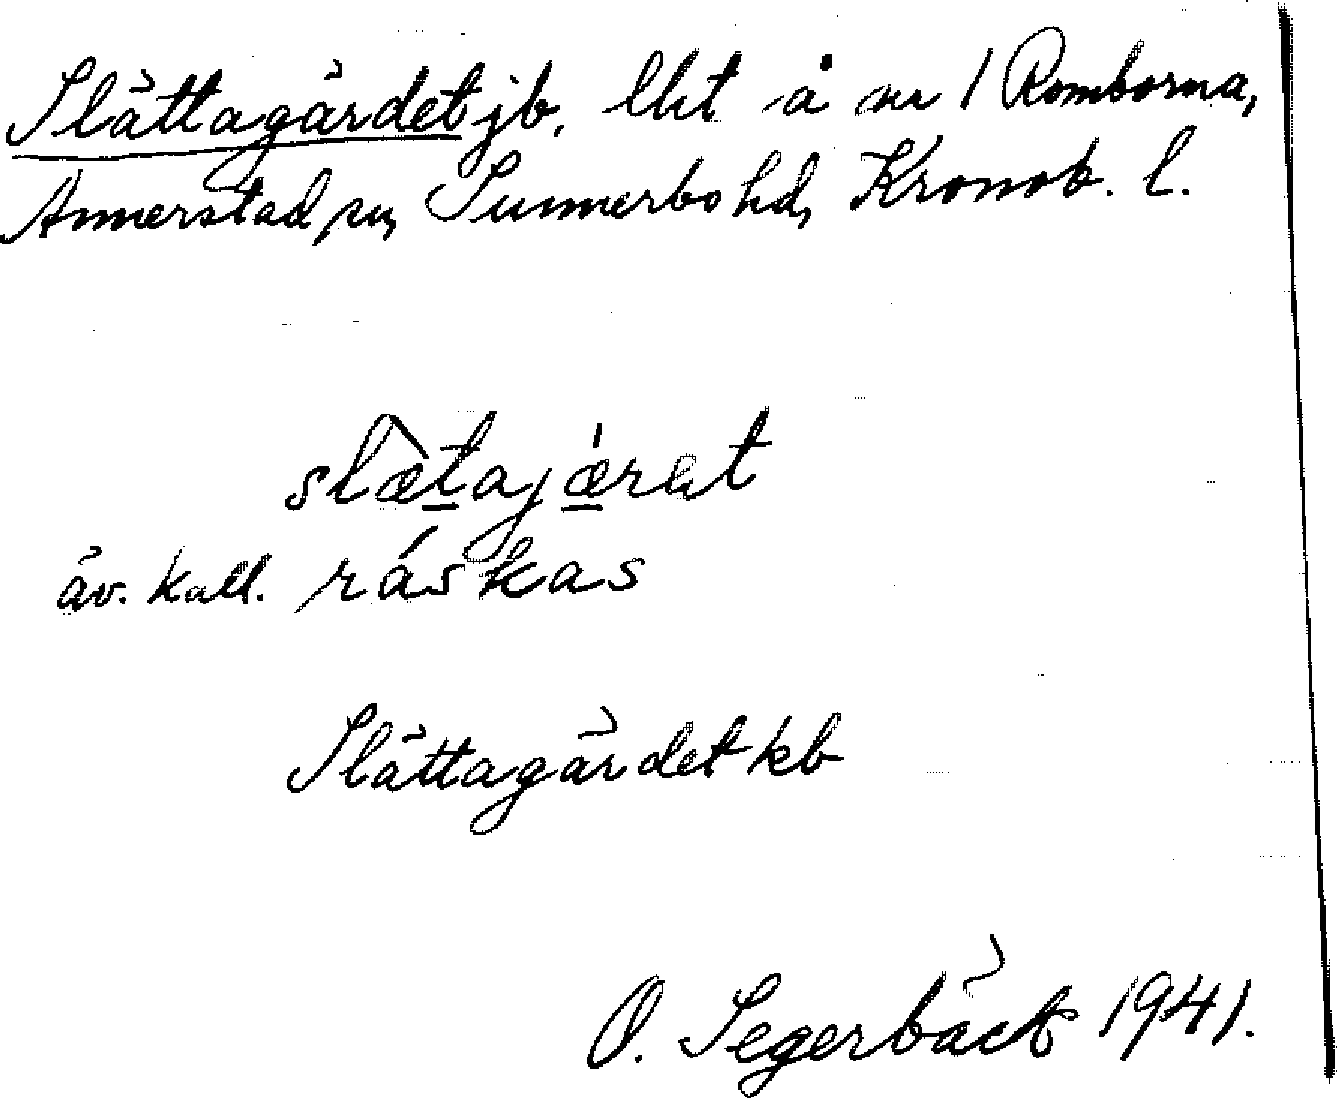 Slättagärdet jb, lht å nr 1 Romborna,
Annerstad sn, Sunnerbo hd, Kronob. l.
slæ̀tajǽrat
äv. kall. ráskas
Slättagärdet kb
O. Segerbäck 1941.